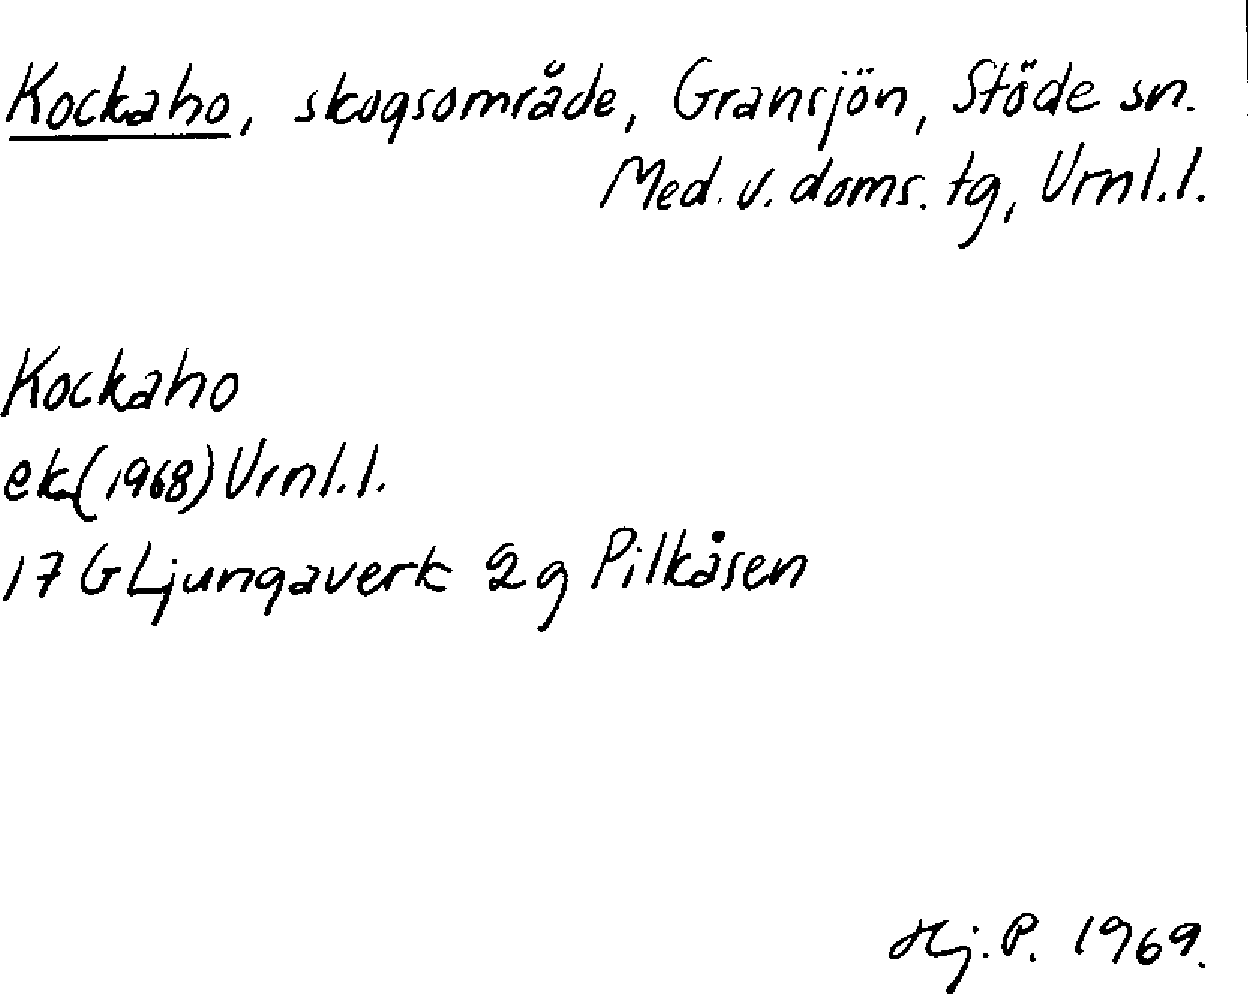 Kockaho, skogsområde, Gransjön, Stöde sn.
Med. v. doms. tg, Vrnl.l.
Kockaho
ek (1968) Vrnl.l.
17 G Ljungaverk 2 g Pilkåsen
Hj. P. 1969.